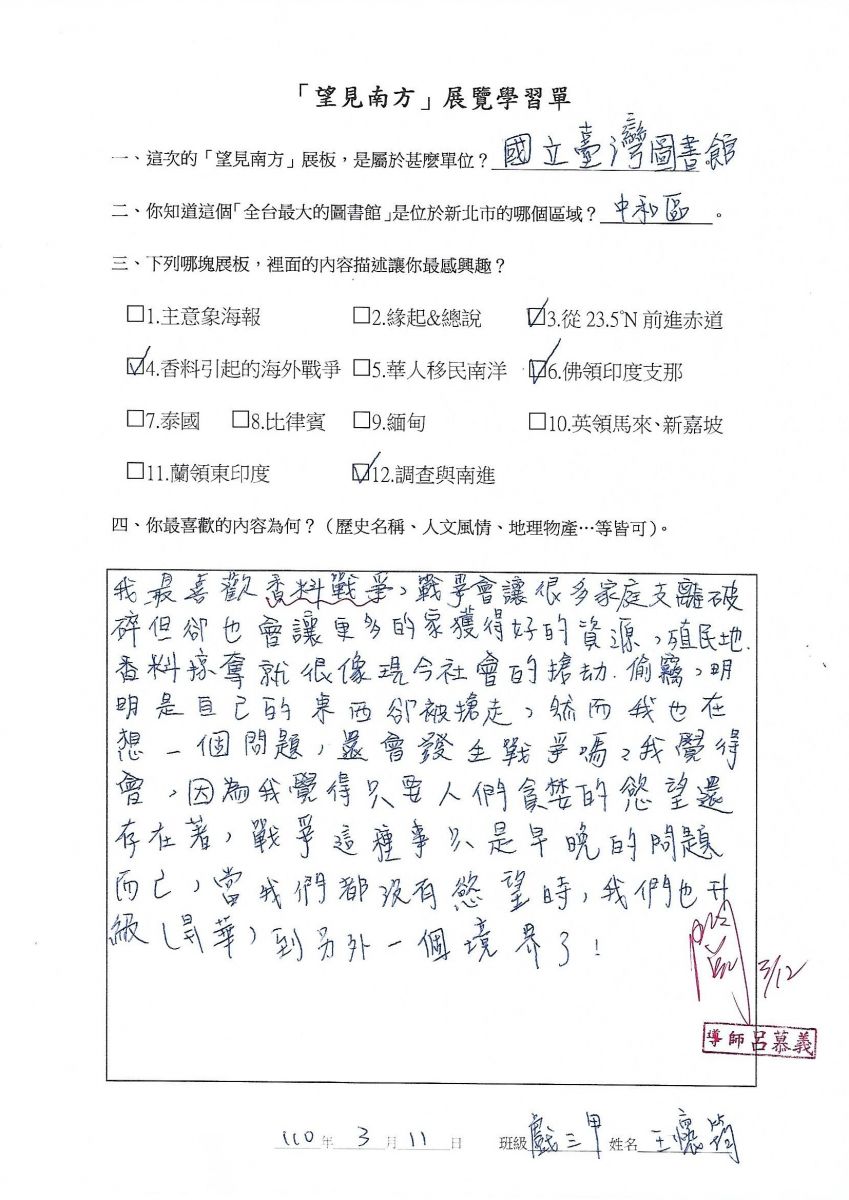 「望見南方」展覽學習單
一、這次的「望見南方」展板，是屬於甚麼單位？國立臺灣圖書館
二、你知道這個「全台最大的圖書館」是位於新北市的哪個區域？中和區。
三、下列哪塊展板，裡面的內容描述讓你最感興趣？
☐1.主意象海報 ☐2.緣起&總說 ☑3.從 23.5°N 前進赤道
☑4.香料引起的海外戰爭 ☐5.華人移民南洋 ☑6.佛領印度支那
☐7.泰國 ☐8.比律賓 ☐9.緬甸 ☐10.英領馬來、新嘉坡
☐11.蘭領東印度 ☑12.調查與南進
四、你最喜歡的內容為何？（歷史名稱、人文風情、地理物產…等皆可）。
我最喜歡香料戰爭，戰爭會讓很多家庭支離破
碎但卻也會讓更多的家獲得好的資源，殖民地.
香料掠奪就很像現今社會的搶劫.偷竊，明
明是自己的東西卻被搶走，然而我也在
想一個問題，還會發生戰爭嗎？我覺得
會，因為我覺得只要人們貪婪的慾望還
存在著，戰爭這種事只是早晚的問題
而已，當我們都沒有慾望時，我們也升
級(昇華)到另外一個境界了!
閱 3/12
導師呂慕義
110年 3 月 11 日 班級戲三甲 姓名王懷筠